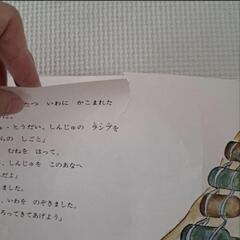 たつ いわに かこまれた
は。
・とうだい、しんじゅの ランプを
らの しごと」
むねを はって、
、しんじゅを このあなへ
んだよ」
ました。
、いわを のぞきました。
ろってきてあげよう」